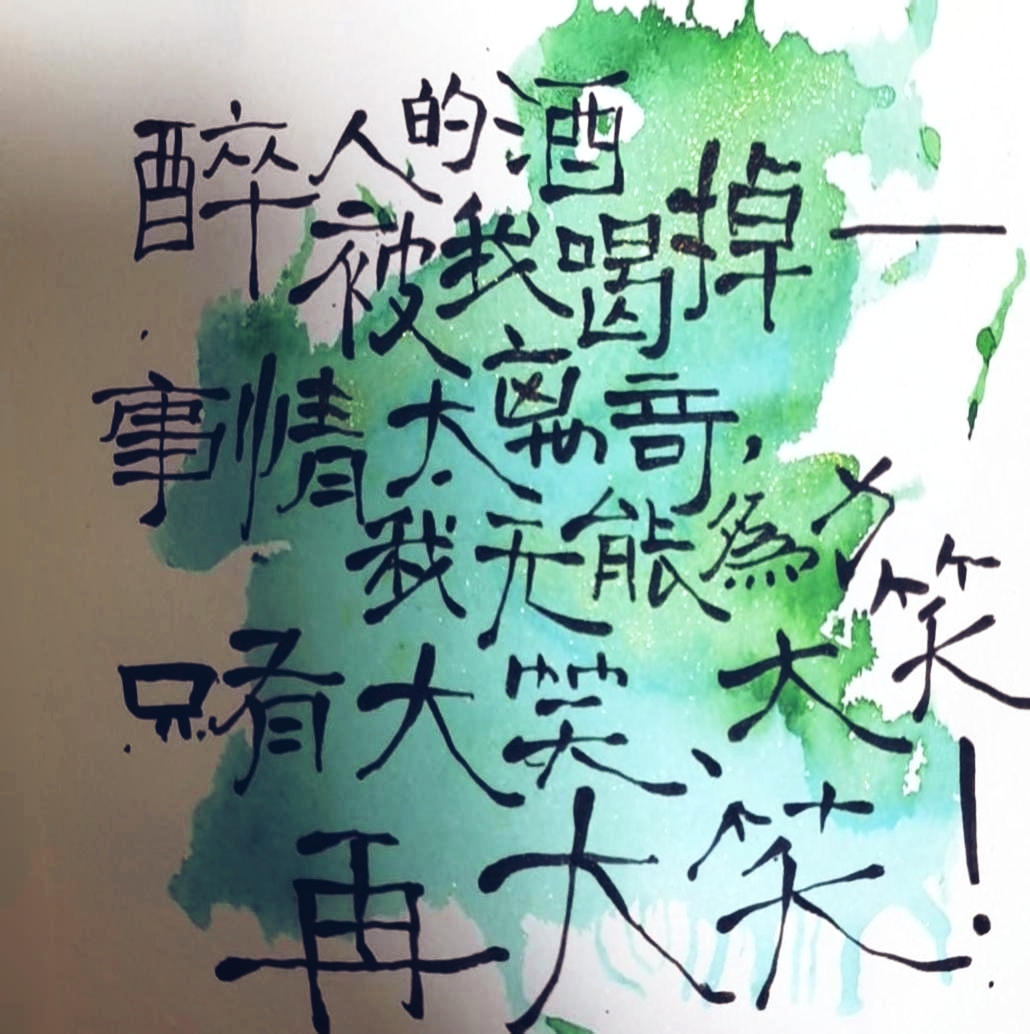 醉人的酒
被我喝掉一
事情太离奇,
我无能為力
只有大笑、大笑
再大笑!